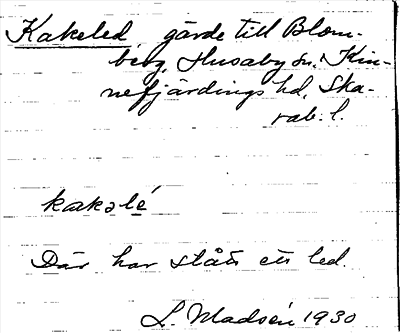 Kakeled gärde till Blom-
berg, Husaby sn. Kin-
nefjärdings hd, Ska-
rab. l.
kakəlé
Där har stått ett led.
L. Madsén 1930